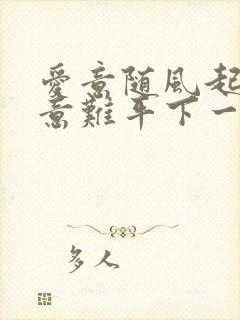 愛意随風起
意難平下一
多人